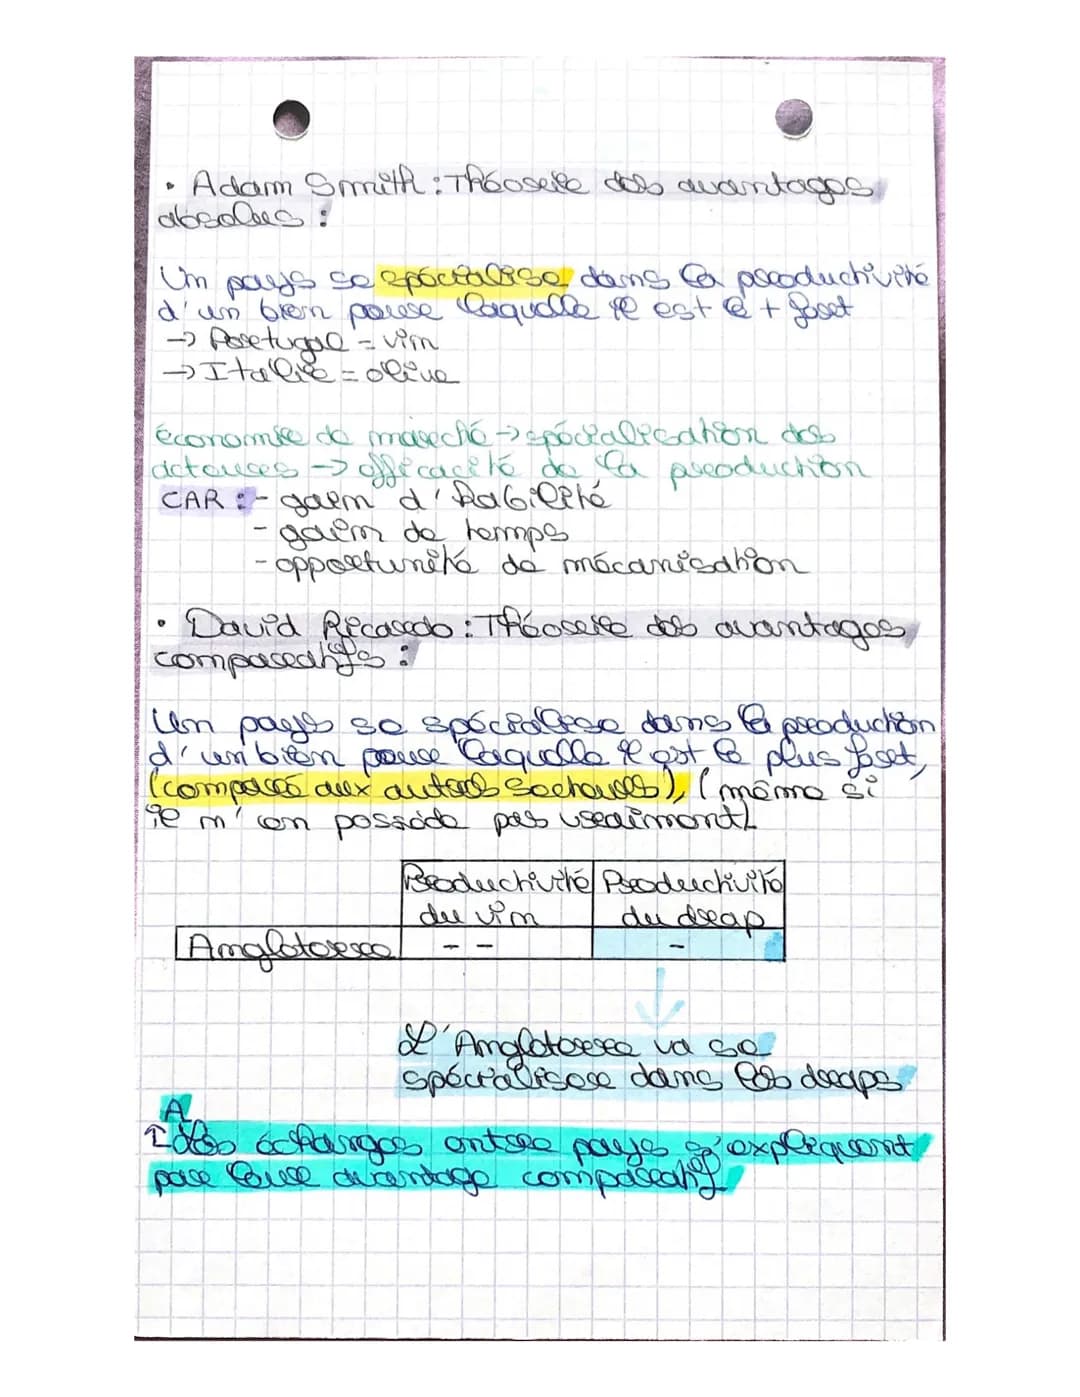 • Adam Smith : Théorie des avantages
absolus :
Un pays se spécialise dans la productivité
d'un bien pour laquelle il est le + fort
→ Portugal = vin
→ Italie = olive
économie de marché → spécialisation des
acteurs → efficacité de la production
CAR : - gain d'habilité
- gain de temps
- opportunité de mécanisation
• David Ricardo : Théorie des avantages
comparatifs :
Un pays se spécialise dans la production
d'un bien pour laquelle il est le plus fort,
(comparé aux autres secteurs), (même si
il n'en possède pas vraiment)
Productivité Productivité
du vin du drap
Angleterre - - -
L'Angleterre va se
spécialiser dans les draps
A
↑ des échanges entre pays s'expliquent
par leur avantage comparatif